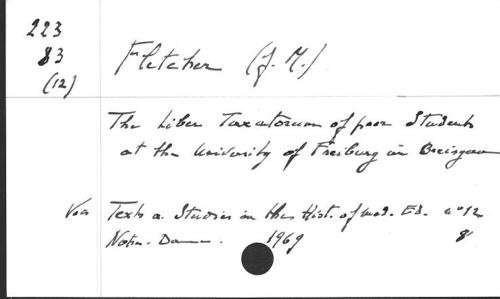 223
83
(12)
Fletcher (J. M.)
The Liber Taxatorum of poor Students
at the University of Freiburg im Breisgau
Texts a. Studies in the Hist. of med. Ed. n° 12
Notre-Dame. 1969 8°